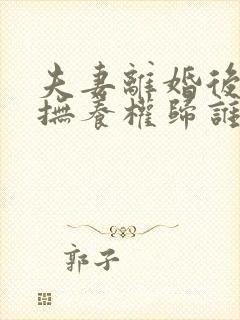 夫妻離婚後
撫養權歸誰
郭子